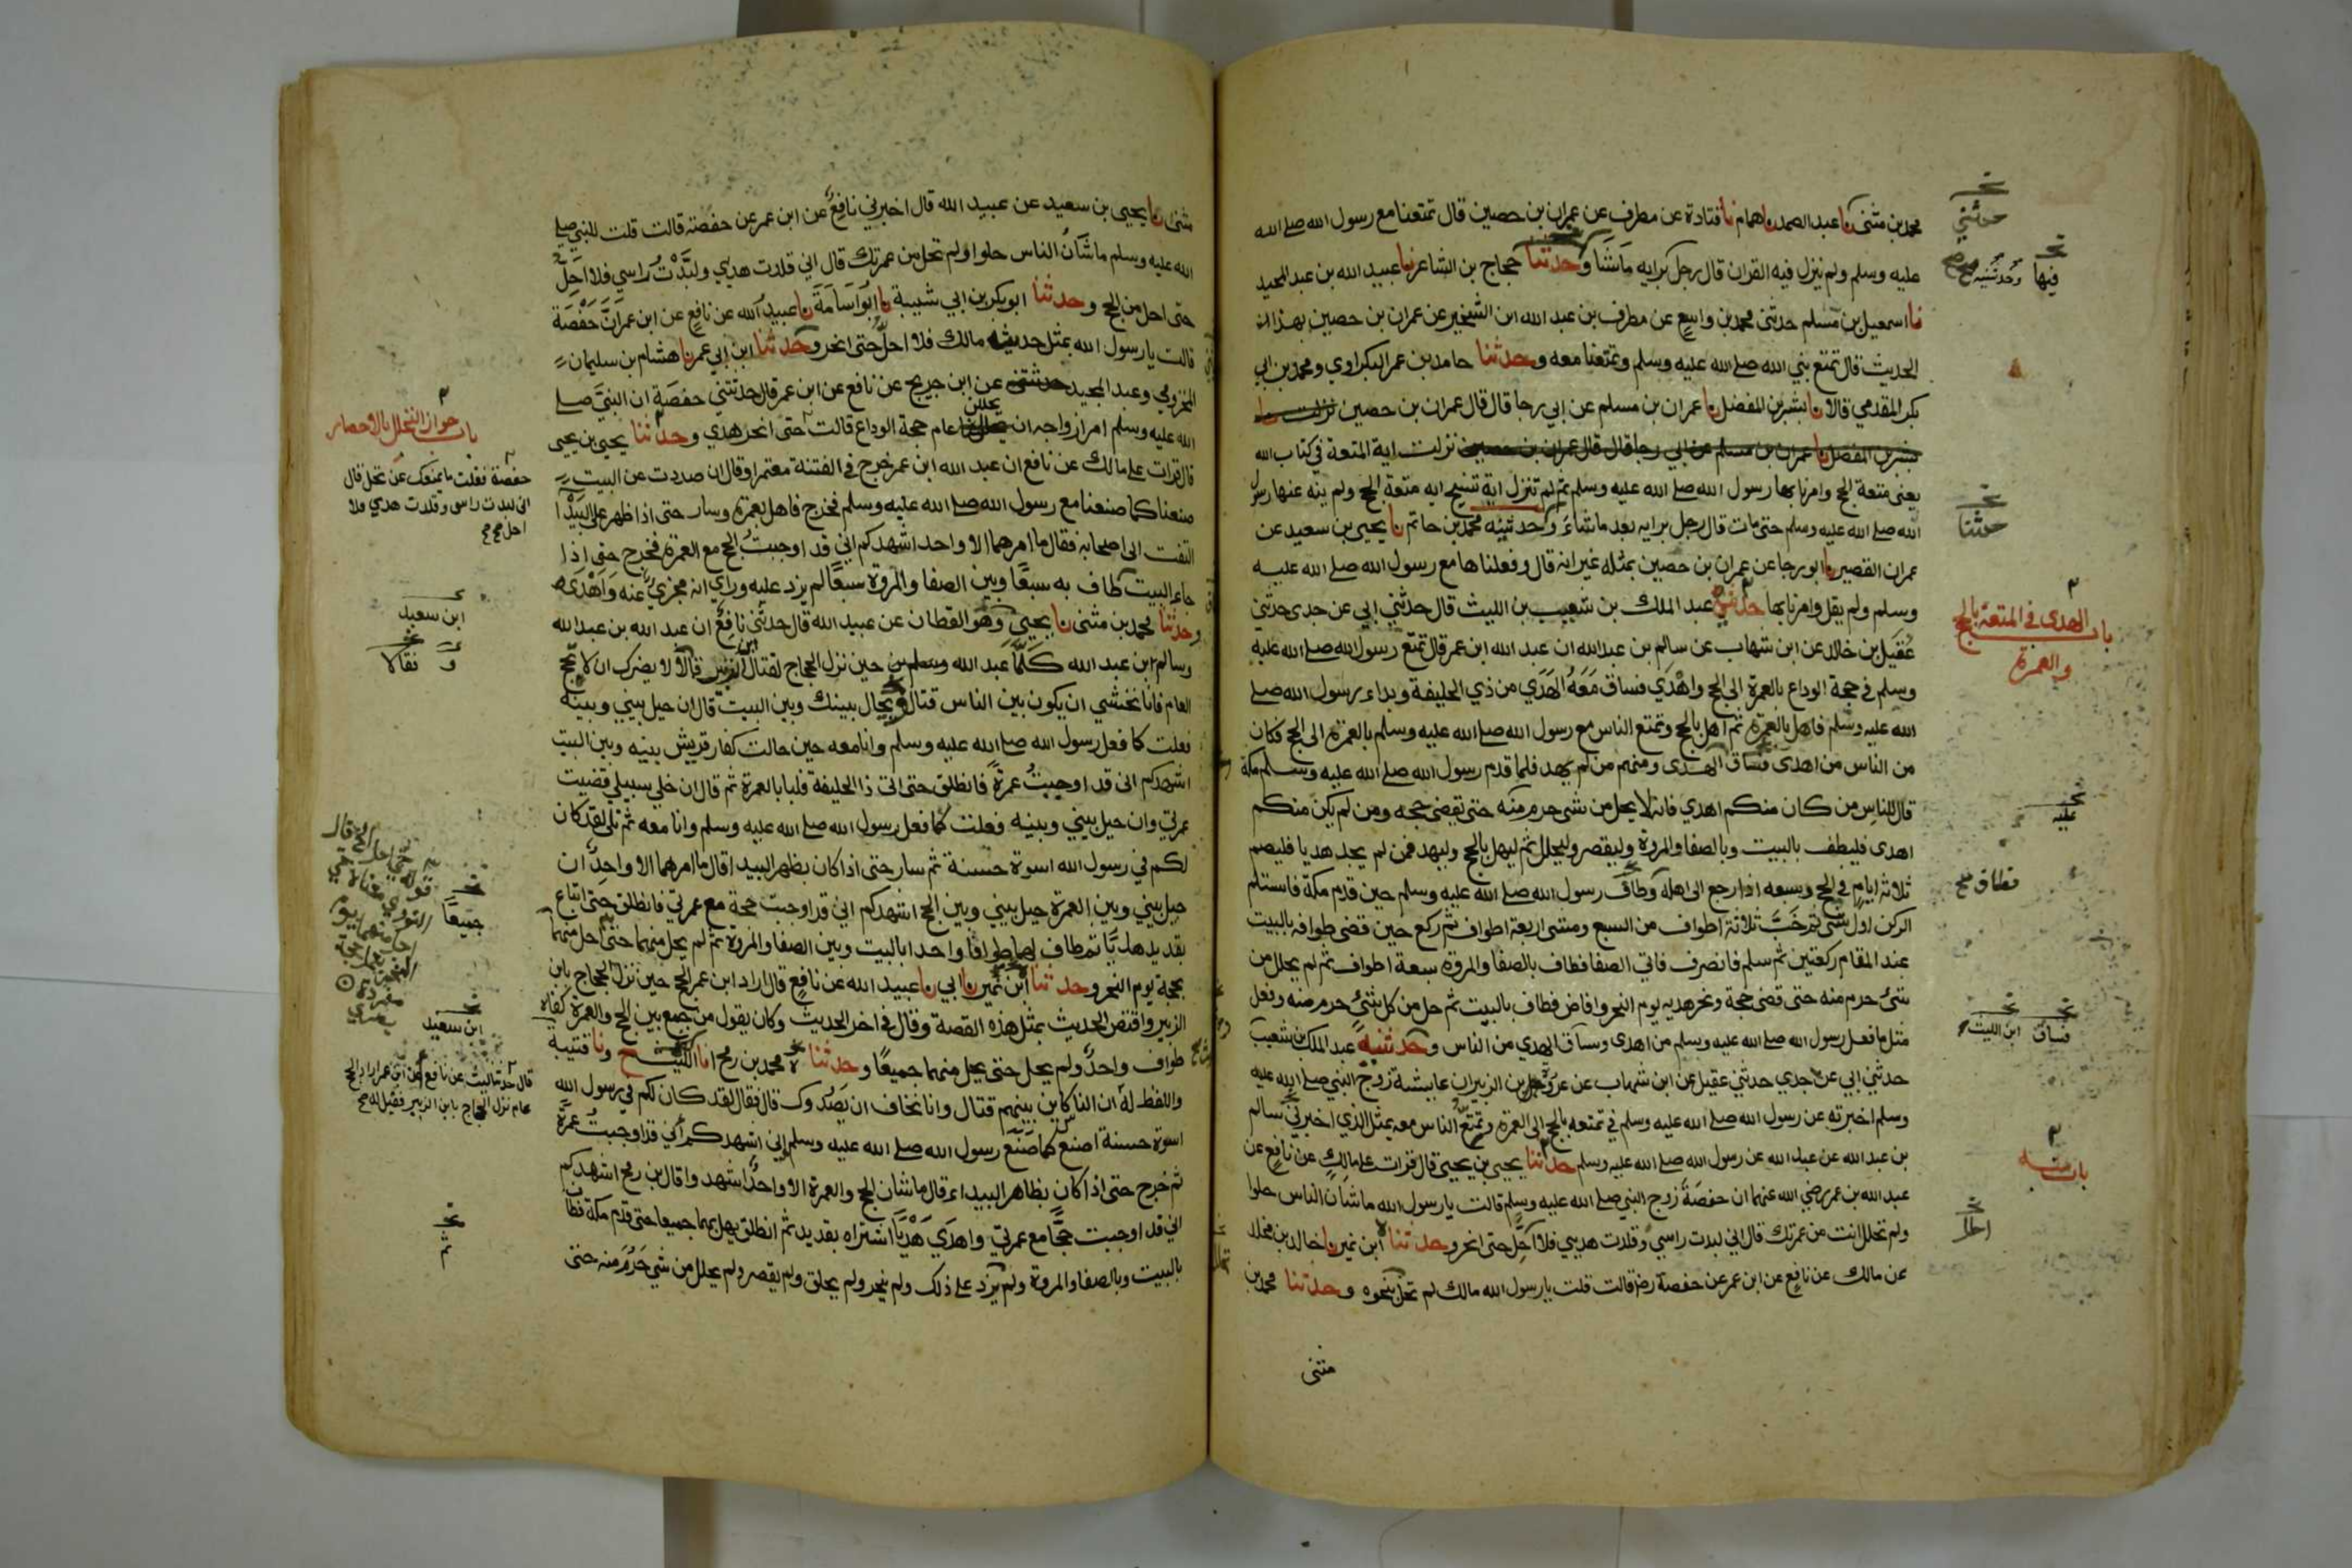 محمد بن مثنى نا عبد الصمد نا همام نا قتادة عن مطرف عن عمران بن حصين قال تمتعنا مع رسول الله صلے الله
عليه وسلم ولم ينزل فيه القران قال رجل برايه ما شا وحدثنا حجاج بن الشاعر نا عبيد الله بن عبد المجيد
نا اسمعيل بن مسلم حدثنى محمد بن واسع عن مطرف بن عبد الله ابن الشخير عن عمران بن حصين بهذا
الحديث قال تمتع نبي الله صلے الله عليه وسلم وتمتعنا معه وحدثنا حامد بن عمر البكراوي ومحمد بن ابي
بكر المقدمي قالا نا بشر بن المفضل نا عمران بن مسلم عن ابي رجا قال قال عمران بن حصين نزلت
بشر بن المفضل نا عمران بن مسلم عن ابي رجا قال قال عمران بن حصين نزلت اية المتعة في كتاب الله
يعنى متعة الحج وامرنا بها رسول الله صلے الله عليه وسلم ثم لم تنزل اية تنسخ اية متعة الحج ولم ينه عنها رسول
الله صلے الله عليه وسلم حتى مات قال رجل برايه بعد ما شاء وحدثنيه محمد بن حاتم نا يحيى بن سعيد عن
عمران القصير نا ابو رجا عن عمران بن حصين بمثله غير انه قال وفعلناها مع رسول الله صلے الله عليه
وسلم ولم يقل وامرنا بها حدثني عبد الملك بن شعيب بن الليث قال حدثني ابي عن جدى حدثني
عقيل بن خالد عن ابن شهاب عن سالم بن عبد الله ان عبد الله ابن عمر قال تمتع رسول الله صلے الله عليه
وسلم في حجة الوداع بالعمرة الى الحج واهدى فساق معه الهدي من ذي الحليفة وبداء رسول الله صلے
الله عليه وسلم فاهل بالعمرة ثم اهل بالحج وتمتع الناس مع رسول الله صلے الله عليه وسلم بالعمرة الى الحج فكان
من الناس من اهدى فساق الهدى ومنهم من لم يهد فلما قدم رسول الله صلے الله عليه وسلم مكة
قال للناس من كان منكم اهدي فانه لا يحل من شى حرم منه حتى يقضى حجه ومن لم يكن منكم
اهدى فليطف بالبيت وبالصفا والمروة وليقصر وليحلل ثم ليهل بالحج وليهد فمن لم يجد هديا فليصم
ثلاثة ايام في الحج وسبعه اذا رجع الى اهله وطاف رسول الله صلے الله عليه وسلم حين قدم مكة فاستلم
الركن اول شى ثم خب ثلاثة اطواف من السبع ومشى اربعة اطواف ثم ركع حين قضى طوافه بالبيت
عند المقام ركعتين ثم سلم فانصرف فاتي الصفا فطاف بالصفا والمروة سبعة اطواف ثم لم يحلل من
شىء حرم منه حتى قضى حجة ونحر هديه يوم النحر وافاض فطاف بالبيت ثم حل من كل شىء حرم منه وفعل
مثل ما فعل رسول الله صلے الله عليه وسلم من اهدى وساق الهدي من الناس وحدثنيه عبد الملك بن شعيب
حدثني ابي عن جدي حدثني عقيل عن ابن شهاب عن عروة بن الزبير ان عايشة زوج النبي صلے الله عليه
وسلم اخبرته عن رسول الله صلے الله عليه وسلم في تمتعه بالحج الى العمرة وتمتع الناس معه بمثل الذي اخبرني سالم
بن عبد الله عن عبد الله عن رسول الله صلے الله عليه وسلم حدثنا يحيى بن يحيى قال قرات على مالك عن نافع عن
عبد الله بن عمر رضي الله عنهما ان حفصة زوج النبي صلے الله عليه وسلم قالت يا رسول الله ما شان الناس حلوا
ولم تحلل انت من عمرتك قال اني لبدت راسي وقلدت هديي فلا احل حتى انحر وحدثنا ابن نمير نا خالد بن مخلد
عن مالك عن نافع عن ابن عمر عن حفصة رض قالت قلت يا رسول الله مالك لم تحل بنحوه وحدثنا محمد بن
مثنى
حدثني
فيها وحدثنيه صح
حدثنا
باب الهدى في المتعة بالحج
والعمرة
عليه
فطاف صح
فساق ابن الليث
باب منه
احل
مثنى نا يحيى بن سعيد عن عبيد الله قال اخبرني نافع عن ابن عمر عن حفصة قالت قلت للنبي صلے
الله عليه وسلم ما شان الناس حلوا ولم تحل من عمرتك قال اني قلدت هديي ولبدت راسي فلا احل
حتى احل من الحج وحدثنا ابو بكر بن ابي شيبة نا ابو اسامة نا عبيد الله عن نافع عن ابن عمر ان حفصة
قالت يا رسول الله بمثل حديث مالك فلا احل حتى انحر وحدثنا ابن ابي عمر نا هشام بن سليمان
المخزومي وعبد المجيد عن ابن جريج عن نافع عن ابن عمر قال حدثتني حفصة ان النبي صلے
الله عليه وسلم امر ازواجه ان يحللن عام حجة الوداع قالت حتى انحر هدي وحدثنا يحيى بن يحيى
قال قرات على مالك عن نافع ان عبد الله ابن عمر خرج في الفتنة معتمرا وقال ان صددت عن البيت
صنعنا كما صنعنا مع رسول الله صلے الله عليه وسلم فخرج فاهل بعمرة وسار حتى اذا ظهر على البيدا
التفت الى اصحابه فقال ما امرهما الا واحد اشهدكم اني قد اوجبت الحج مع العمرة فخرج حتى اذا
جاء البيت طاف به سبعا وبين الصفا والمروة سبعا لم يزد عليه وراي انه مجزئ عنه واهدى
وحدثنا محمد بن مثنى نا يحيى وهو القطان عن عبيد الله قال حدثني نافع ان عبد الله بن عبد الله
وسالم ابن عبد الله كلما عبد الله حين نزل الحجاج لقتال ابن الزبير قالا لا يضرك ان لا تحج
العام فانا نخشي ان يكون بين الناس قتال يحال بينك وبين البيت قال ان حيل بيني وبينه
فعلت كما فعل رسول الله صلے الله عليه وسلم وانا معه حين حالت كفار قريش بينه وبين البيت
اشهدكم اني قد اوجبت عمرة فانطلق حتى اتى ذا الحليفة فلبا بالعمرة ثم قال ان خلي سبيلي قضيت
عمرتي وان حيل بيني وبينه فعلت كما فعل رسول الله صلے الله عليه وسلم وانا معه ثم تلى لقد كان
لكم في رسول الله اسوة حسنة ثم سار حتى اذا كان بظهر البيدا قال ما امرهما الا واحد ان
حيل بيني وبين العمرة حيل بيني وبين الحج اشهدكم اني قد اوجبت حجة مع عمرتي فانطلق حتى ابتاع
بقديد هديا ثم طاف لهما طوافا واحدا بالبيت وبين الصفا والمروة ثم لم يحل منهما حتى احل منهما
بحجة يوم النحر وحدثنا ابن نمير نا ابي نا عبيد الله عن نافع قال اراد ابن عمر الحج حين نزل الحجاج بابن
الزبير واقتص الحديث بمثل هذه القصة وقال في اخر الحديث وكان يقول من جمع بين الحج والعمرة كفاه
طواف واحد ولم يحل حتى يحل منهما جميعا وحدثنا محمد بن رمح انا الليث ح ونا قتيبة
واللفظ له ان الناس كاين بينهم قتال وانا نخاف ان يصدوك قال فقال لقد كان لكم في رسول الله
اسوة حسنة اصنع كما صنع رسول الله صلے الله عليه وسلم اني اشهدكم اني قد اوجبت عمرة
ثم خرج حتى اذا كان بظاهر البيداء قال ما شان الحج والعمرة الا واحد اشهدوا قال بن رمح اشهدكم
اني قد اوجبت حجا مع عمرتي واهدي هديا اشتراه بقديد ثم انطلق يهل بهما جميعا حتى قدم مكة فطاف
بالبيت وبالصفا والمروة ولم يزد على ذلك ولم ينحر ولم يحلق ولم يقصر ولم يحلل من شي حرم منه حتى
باب جواز التحلل بالاحصار
حفصة فقلت ما يمنعك عن تحل قال
انى لبدت راسى وقلدت هدي فلا
احل
ابن سعيد
و فقالا
جميعا
ابن سعيد
قال حدثنا ليث عن نافع ان ابن عمر اراد الحج
عام نزل الحجاج بابن الزبير فقيل له صح
ثم